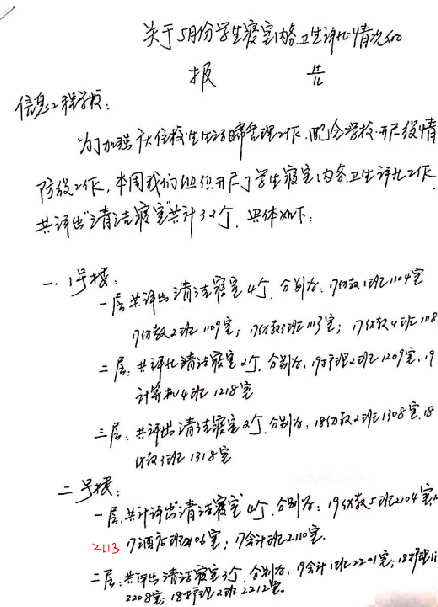 关于5月份学生寝室内务卫生评比情况的
报告
信息工程学校:
为了加强我校住校生生活管理工作,配合学校开展疫情
防控工作,本周我们组织开展了学生寝室内务卫生评比工作
共评出“清洁寝室”共计32个,具体如下:
一、1号楼:
一层:共评出清洁寝室4个,分别为:17幼教1班1104室
17幼教2班1109室;17幼教3班1113室;17幼教4班1108
二层:共评出清洁寝室2个,分别为:19护理2班1209室,19
计算机4班1218室
三层:共评出清洁寝室2个,分别为:18幼教2班1308室,18
幼教3班1318室
二号楼:
一层:共计评出“清洁寝室”4个,分别为:19幼教5班2104室,
2113 17酒店班2106室;17会计班2110室.
二层:共评出清洁寝室3个,分别为:17会计1班2201室;18护理1
2208室;18护理2班2212室.